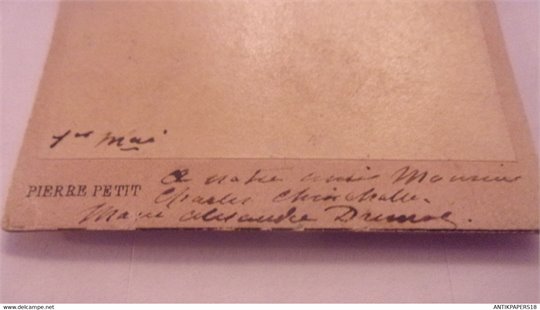 1er Mai
A notre ami Monsieur
PIERRE PETIT
Charles Chincholle.
Marie Alexandre Dumas.
www.delcampe.net
ANTIKPAPERS18